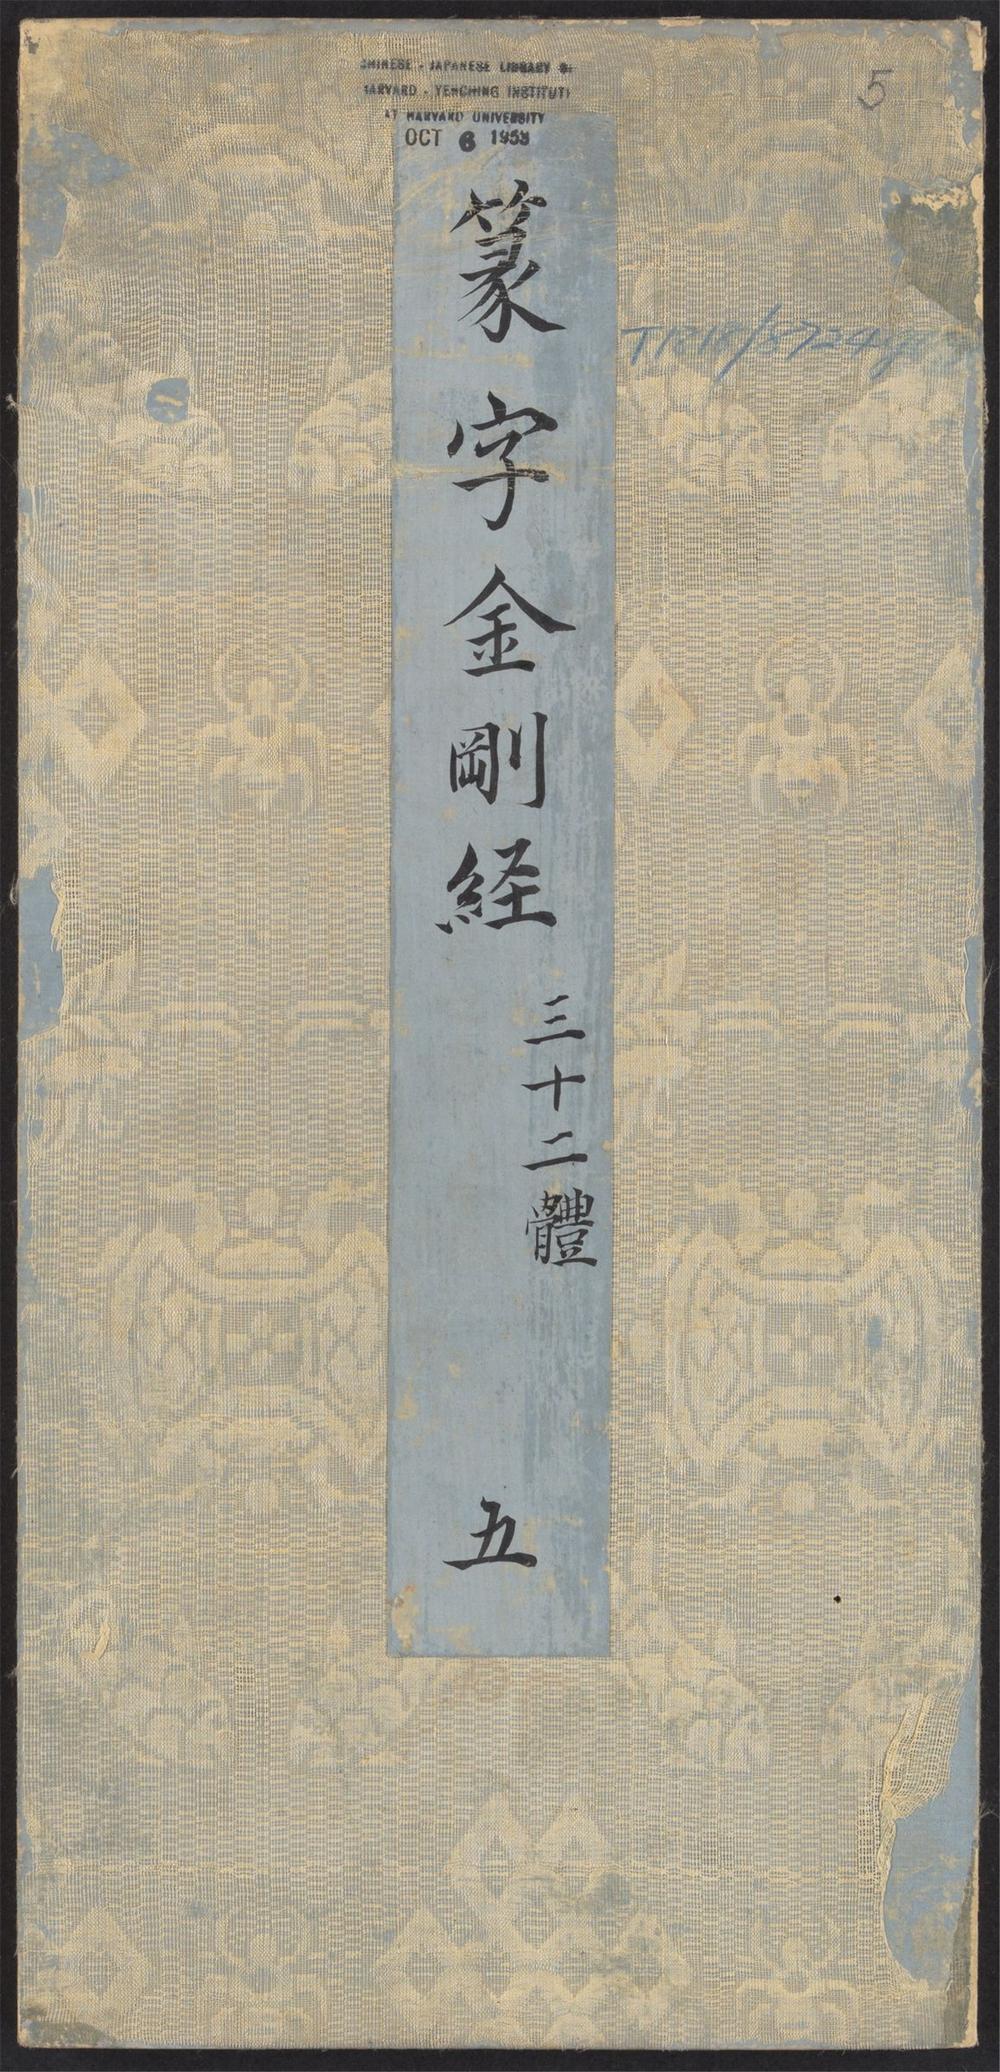 CHINESE - JAPANESE LIBRARY OF
HARVARD - YENCHING INSTITUTE
AT HARVARD UNIVERSITY
OCT 6 1953
5
篆字金剛経
三十二體
五